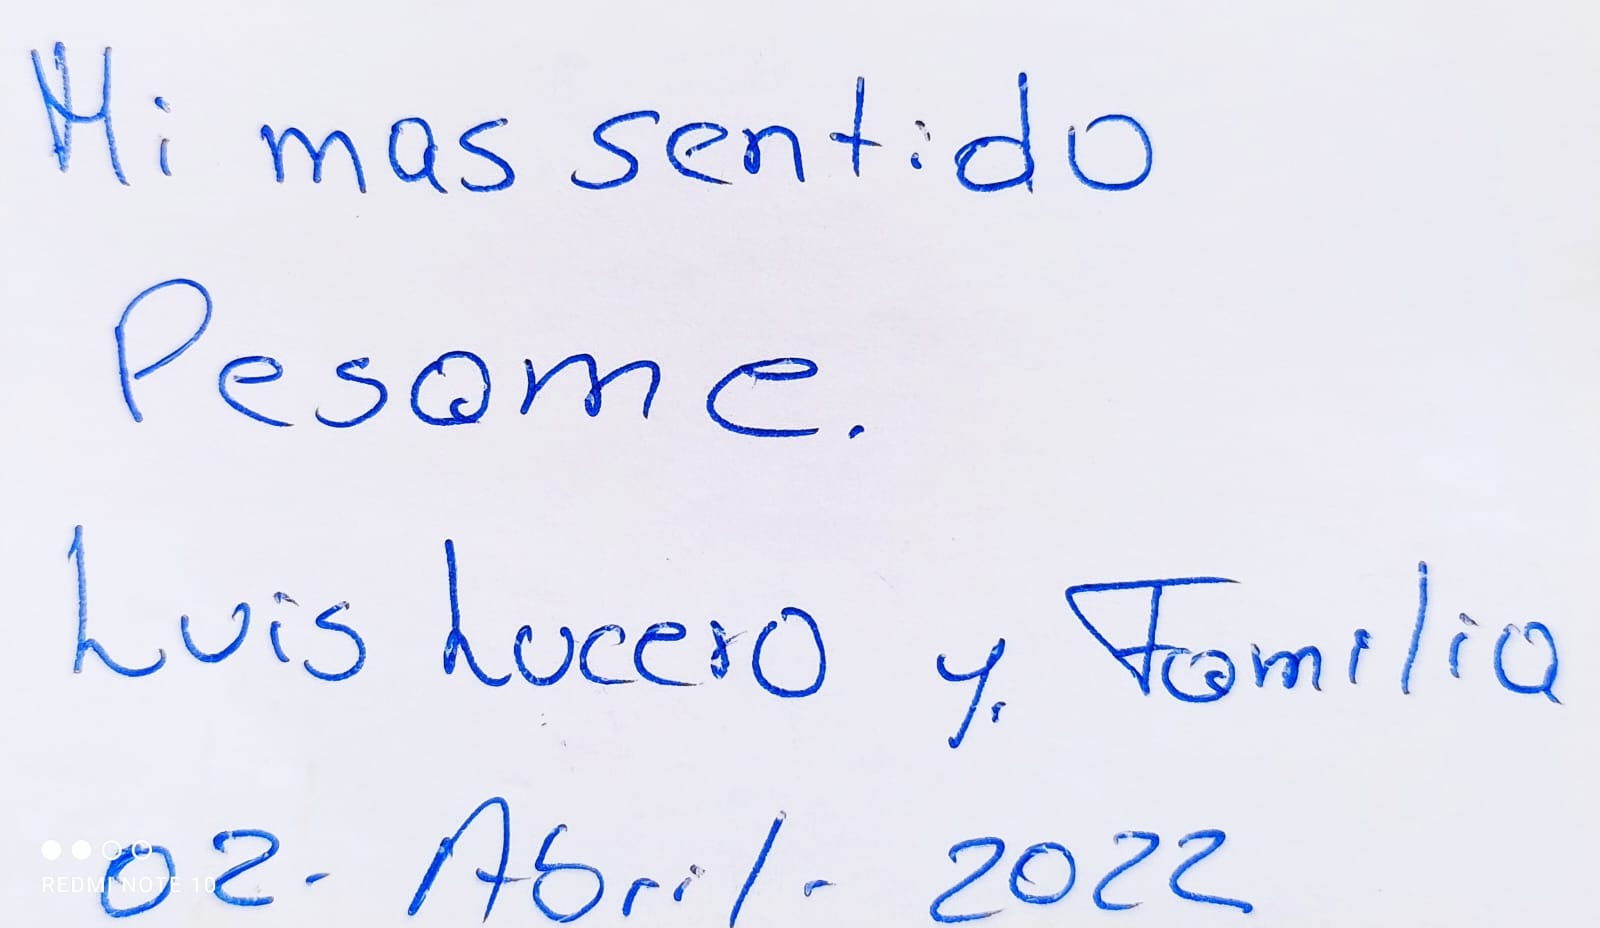 Mi mas sentido
Pesame.
Luis Lucero y. Familia
02- Abril- 2022
REDMI NOTE 10